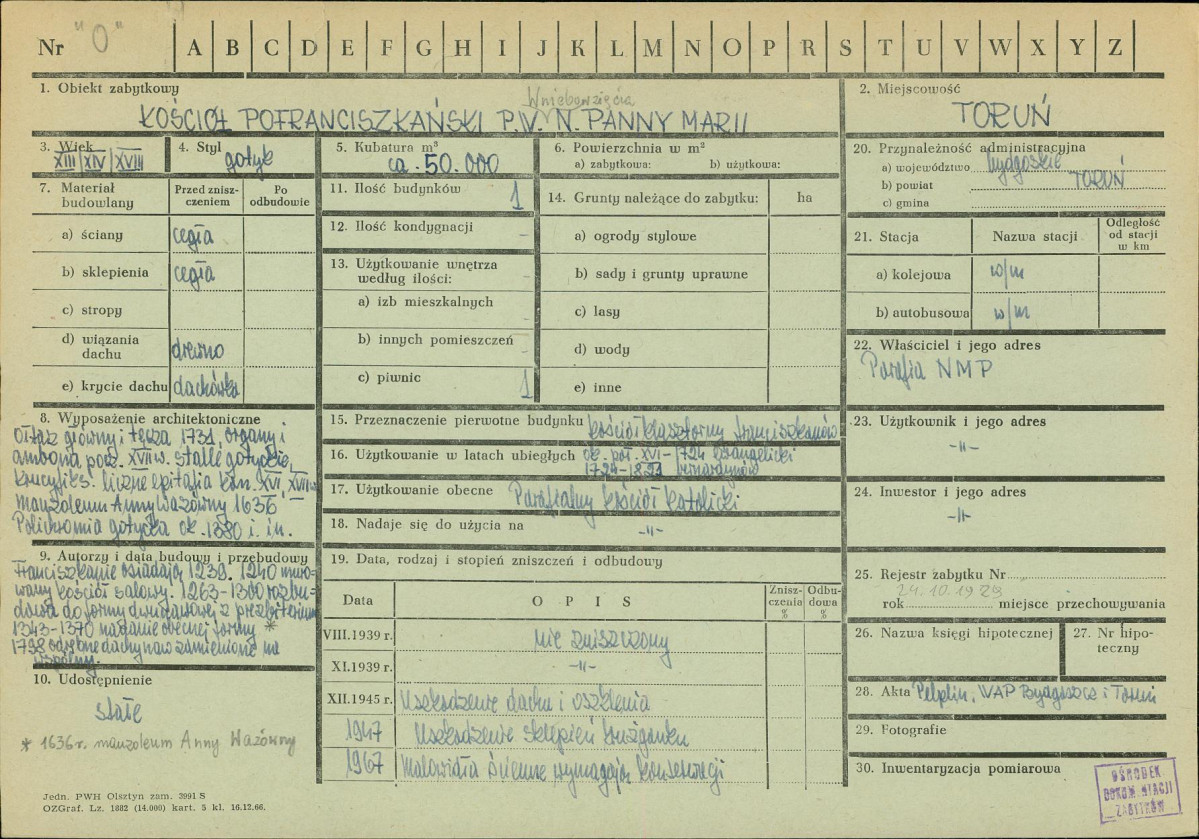 Nr "O" A B C D E F G H I J K L M N O P R S T U V W X Y Z
1. Obiekt zabytkowy
Wniebowzięcia
KOŚCIÓŁ POFRANCISZKAŃSKI P.W. N. PANNY MARII
2. Miejscowość
TORUŃ
3. Wiek
XIII/XIV/XVIII
4. Styl
gotyk
5. Kubatura m³
ca. 50.000
6. Powierzchnia w m²
a) zabytkowa: b) użytkowa:
20. Przynależność administracyjna
a) województwo bydgoskie
b) powiat TORUŃ
c) gmina
7. Materiał budowlany
Przed zniszczeniem
Po odbudowie
a) ściany cegła
b) sklepienia cegła
c) stropy
d) wiązania dachu drewno
e) krycie dachu dachówka
11. Ilość budynków 1
12. Ilość kondygnacji -
13. Użytkowanie wnętrza
według ilości:
a) izb mieszkalnych
b) innych pomieszczeń
c) piwnic 1
14. Grunty należące do zabytku: ha
a) ogrody stylowe
b) sady i grunty uprawne
c) lasy
d) wody
e) inne
21. Stacja
Nazwa stacji
Odległość
od stacji
w km
a) kolejowa w/m
b) autobusowa w/m
22. Właściciel i jego adres
Parafia NMP
8. Wyposażenie architektoniczne
Ołtarz główny i tęcza 1731, organy i
ambona pocz. XVII w. stalle gotyckie,
krucyfiks. liczne epitafia kon. XVI, XVII w.
mauzoleum Anny Wazówny 1636
Polichromia gotycka ok. 1380 i. in.
15. Przeznaczenie pierwotne budynku kościół klasztorny franciszkanów
16. Użytkowanie w latach ubiegłych ok. poł. XVI-1724 ewangelicki
1724-1821 bernardynów
17. Użytkowanie obecne Parafialny kościół katolicki
18. Nadaje się do użycia na -"-
23. Użytkownik i jego adres
-"-
24. Inwestor i jego adres
-"-
9. Autorzy i data budowy i przebudowy
Franciszkanie osiadają 1239. 1240 muro-
wany kościół salowy. 1263-1300 rozbu-
dowa do formy dwunawowej z prezbiterium
1343-1370 nadanie obecnej formy *
1798 odrębne dachy naw zamienione na
wspólny.
10. Udostępnienie
stałe
* 1636 r. mauzoleum Anny Wazówny
19. Data, rodzaj i stopień zniszczeń i odbudowy
Data
O P I S
Zniszczenia %
Odbudowa %
VIII.1939 r. nie zniszczony
XI.1939 r. -"-
XII.1945 r. Uszkodzenie dachu i oszklenia
1947 Uszkodzenie sklepień krużganku
1967 Malowidła ścienne wymagają konserwacji
25. Rejestr zabytku Nr
24.10.1929
rok miejsce przechowywania
26. Nazwa księgi hipotecznej
27. Nr hipo-
teczny
28. Akta Pelplin, WAP Bydgoszcz i Toruń
29. Fotografie
30. Inwentaryzacja pomiarowa
OŚRODEK
DOKUMENTACJI
ZABYTKÓW
Jedn. PWH Olsztyn zam. 3991 S
OZGraf. Lz. 1882 (14.000) kart. 5 kl. 16.12.66.